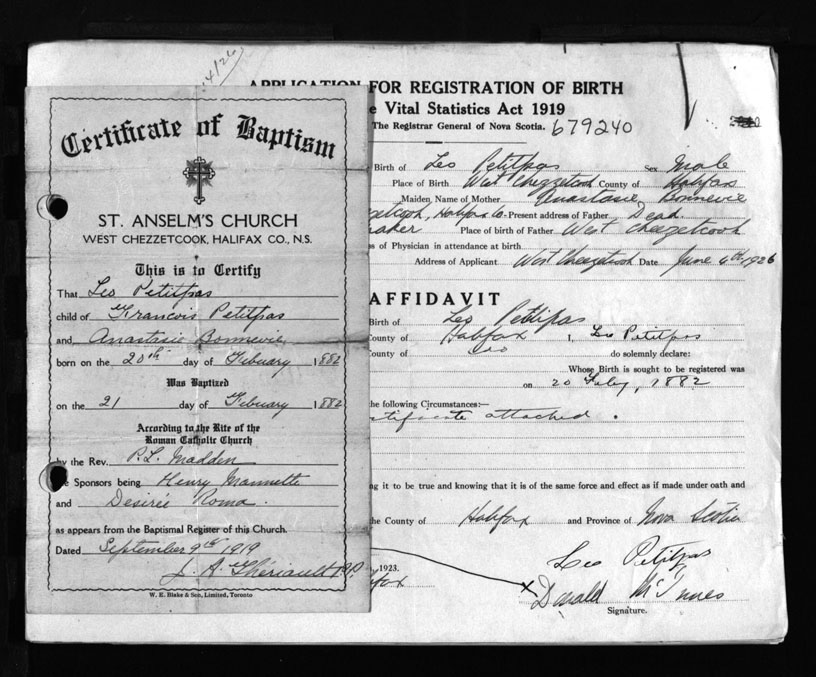 4/26
Certificate of Baptism
ST. ANSELM'S CHURCH
WEST CHEZZETCOOK, HALIFAX CO., N.S.
This is to Certify
That Leo Petitpas
child of Francois Petitpas
and Anastasie Bonnevie
born on the 20th day of Febuary 1882
Was Baptized
on the 21 day of Febuary 1882
According to the Rite of the
Roman Catholic Church
by the Rev. P. L. Madden
e Sponsors being Henry Mannette
and Desireé Roma.
as appears from the Baptismal Register of this Church.
Dated September 9th 1919
J. A. Thériault P.P.
W. E. Blake & Son, Limited, Toronto
APPLICATION FOR REGISTRATION OF BIRTH
e Vital Statistics Act 1919
The Registrar General of Nova Scotia. 679240
Birth of Leo Petitpas Sex Male
Place of Birth West Chezzetcook County of Halifax
Maiden Name of Mother Anastasie Bonnevie
zetcook, Halifax Co. Present address of Father Dead
Place of birth of Father West Chezzetcook
s of Physician in attendance at birth
Address of Applicant West Chezzetcook Date June 4th, 1926
AFFIDAVIT
Birth of Leo Petitpas
County of Halifax I, Leo Petitpas
County of do solemnly declare:
Whose Birth is sought to be registered was
on 20 Feby, 1882
the following Circumstances:—
tificate attached.
ng it to be true and knowing that it is of the same force and effect as if made under oath and
the County of Halifax and Province of Nova Scotia
Leo Petitpas
, 1923.
fax
x Donald McInnes
Signature.